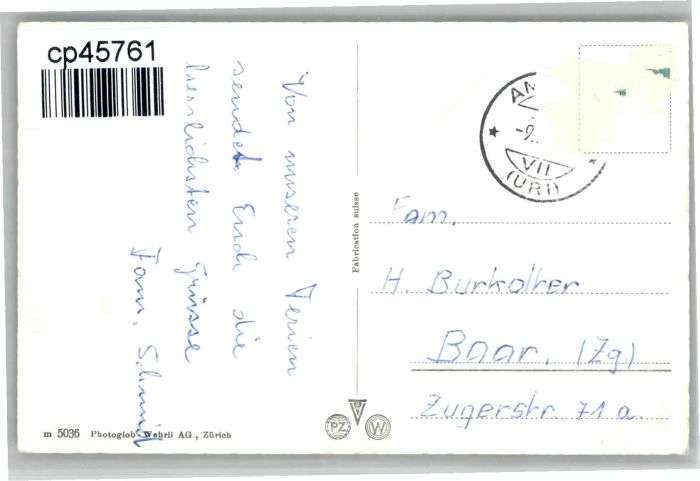 cp45761
Von unseren Ferien
sendet Euch die
herrlichsten Grüsse
Fam. Schmid
Fabrication suisse
AN
-9.
VII
(URI)
Fam.
H. Burkolter
Baar. (Zg)
Zugerstr. 71 a.
m 5036 Photoglob-Wehrli AG., Zürich
PZ
W